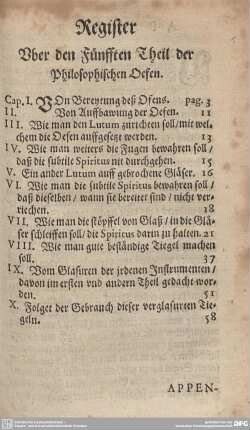 Register
Vber den Fünfften Theil der
Philosophischen Oefen.
Cap. I. VOn Bereytung deß Ofens. pag. 3
II. Von Auffbawung der Oefen. 11
III. Wie man den Lutum zurichten soll/ mit wel-
chem die Oefen auffgesetzt werden. 13
IV. Wie man weiters die Fugen bewahren soll/
daß die subtile Spiritus nit durchgehen. 15
V. Ein ander Lutum auff gebrochne Gläser. 16
VI. Wie man die subtile Spiritus bewahren soll/
daß dieselben/ wann sie bereitet sind/ nicht ver-
riechen. 18
VII. Wie man die stöpffel von Glaß/ in die Glä-
ser schleiffen soll/ die Spiritus darin zu halten. 21
VIII. Wie man gute beständige Tiegel machen
soll. 37
IX. Vom Glasuren der jrdenen Instrumenten/
davon im ersten vnd andern Theil gedacht wor-
den. 51
X. Folget der Gebrauch dieser verglasurten Tie-
geln. 58
APPEN-